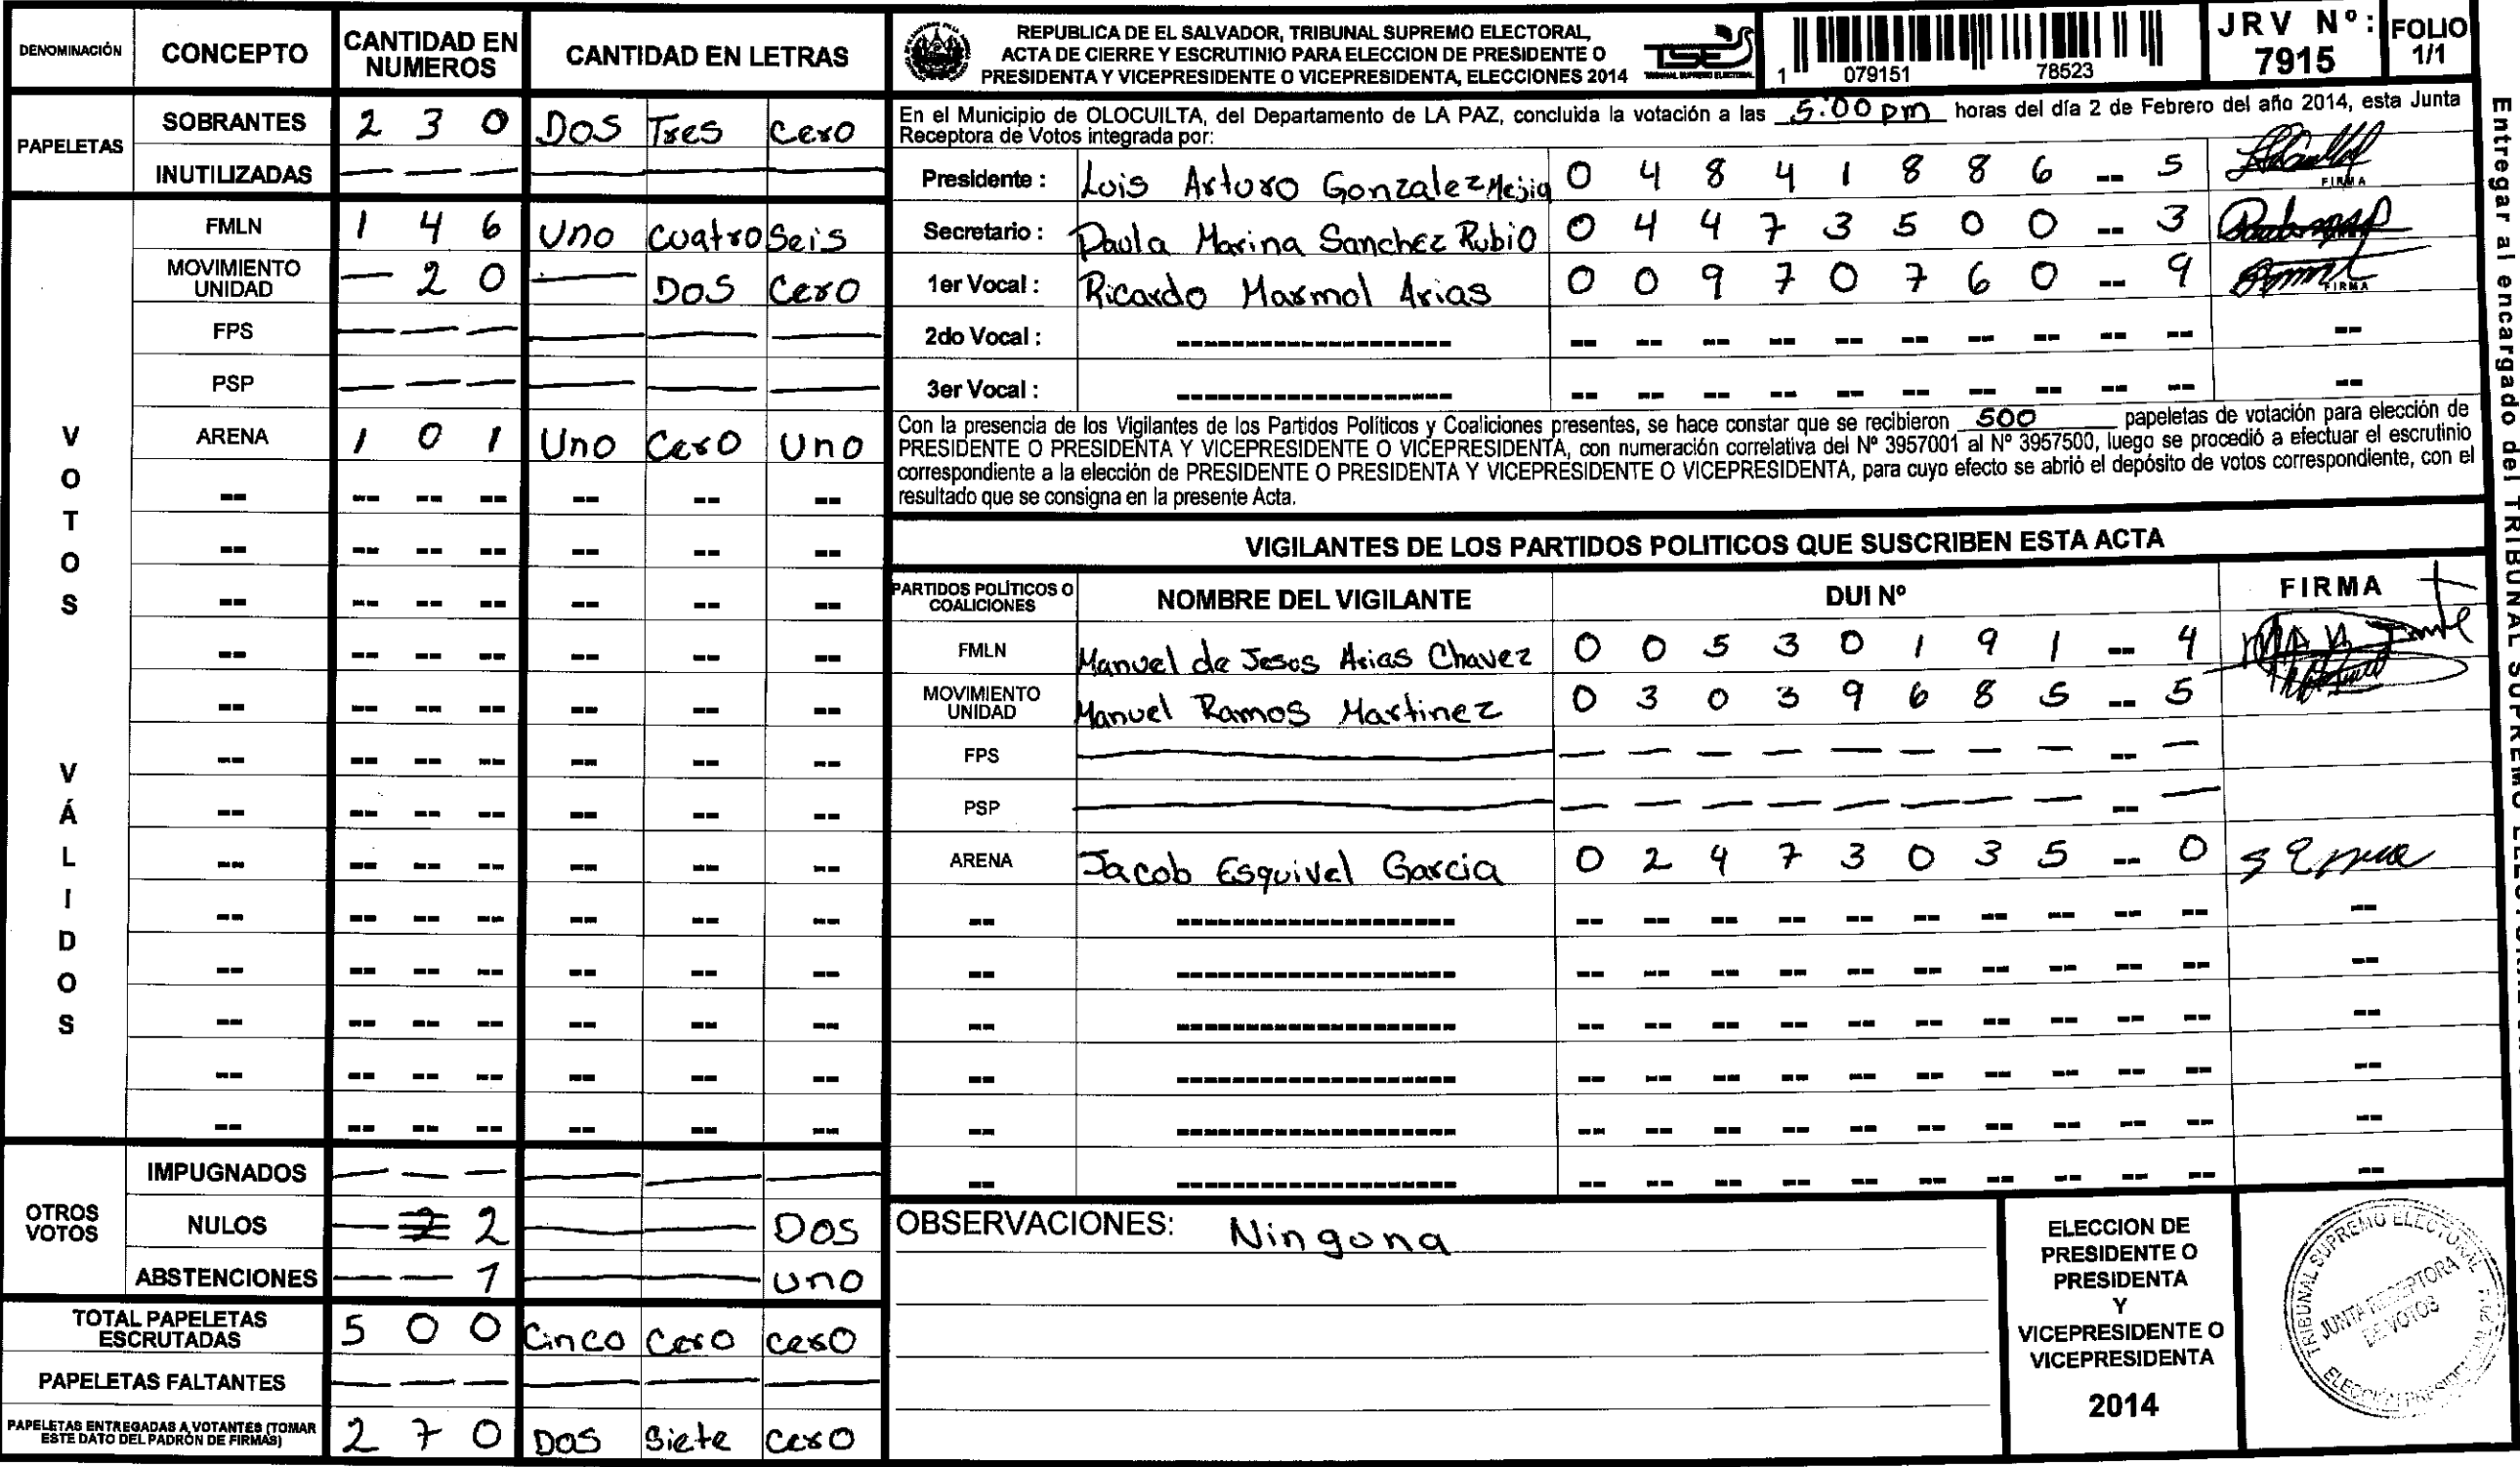 DENOMINACIÓN CONCEPTO CANTIDAD EN NUMEROS CANTIDAD EN LETRAS
PAPELETAS
SOBRANTES 2 3 0 Dos Tres Cero
INUTILIZADAS — — — — — —
VOTOS VÁLIDOS
FMLN 1 4 6 Uno Cuatro Seis
MOVIMIENTO UNIDAD — 2 0 — Dos Cero
FPS — — — — — —
PSP — — — — — —
ARENA 1 0 1 Uno Cero Uno
-- -- -- -- -- -- --
-- -- -- -- -- -- --
-- -- -- -- -- -- --
-- -- -- -- -- -- --
-- -- -- -- -- -- --
-- -- -- -- -- -- --
-- -- -- -- -- -- --
-- -- -- -- -- -- --
-- -- -- -- -- -- --
-- -- -- -- -- -- --
-- -- -- -- -- -- --
-- -- -- -- -- -- --
-- -- -- -- -- -- --
OTROS VOTOS
IMPUGNADOS — — — — — —
NULOS — 2 — — Dos
ABSTENCIONES — — 1 — — uno
TOTAL PAPELETAS ESCRUTADAS 5 0 0 Cinco Cero cero
PAPELETAS FALTANTES — — — — — —
PAPELETAS ENTREGADAS A VOTANTES (TOMAR ESTE DATO DEL PADRÓN DE FIRMAS) 2 7 0 Dos Siete cero
REPUBLICA DE EL SALVADOR, TRIBUNAL SUPREMO ELECTORAL,
ACTA DE CIERRE Y ESCRUTINIO PARA ELECCION DE PRESIDENTE O
PRESIDENTA Y VICEPRESIDENTE O VICEPRESIDENTA, ELECCIONES 2014
TSE
TRIBUNAL SUPREMO ELECTORAL
1 079151 78523
JRV Nº: 7915
FOLIO 1/1
En el Municipio de OLOCUILTA, del Departamento de LA PAZ, concluida la votación a las 5:00 pm horas del día 2 de Febrero del año 2014, esta Junta
Receptora de Votos integrada por:
Presidente : Luis Arturo Gonzalez Mejia 0 4 8 4 1 8 8 6 -- 5 FIRMA
Secretario : Paula Marina Sanchez Rubio 0 4 4 7 3 5 0 0 -- 3
1er Vocal : Ricardo Marmol Arias 0 0 9 7 0 7 6 0 -- 9 FIRMA
2do Vocal : -------------------- -- -- -- -- -- -- -- -- -- -- --
3er Vocal : -------------------- -- -- -- -- -- -- -- -- -- -- --
Con la presencia de los Vigilantes de los Partidos Políticos y Coaliciones presentes, se hace constar que se recibieron 500 papeletas de votación para elección de
PRESIDENTE O PRESIDENTA Y VICEPRESIDENTE O VICEPRESIDENTA, con numeración correlativa del Nº 3957001 al Nº 3957500, luego se procedió a efectuar el escrutinio
correspondiente a la elección de PRESIDENTE O PRESIDENTA Y VICEPRESIDENTE O VICEPRESIDENTA, para cuyo efecto se abrió el depósito de votos correspondiente, con el
resultado que se consigna en la presente Acta.
VIGILANTES DE LOS PARTIDOS POLITICOS QUE SUSCRIBEN ESTA ACTA
PARTIDOS POLÍTICOS O COALICIONES NOMBRE DEL VIGILANTE DUI Nº FIRMA
FMLN Manuel de Jesos Arias Chavez 0 0 5 3 0 1 9 1 -- 4
MOVIMIENTO UNIDAD Manuel Ramos Martinez 0 3 0 3 9 6 8 5 -- 5
FPS — — — — — — — — — -- —
PSP — — — — — — — — — -- —
ARENA Jacob Esquivel Garcia 0 2 4 7 3 0 3 5 -- 0
-- -------------------- -- -- -- -- -- -- -- -- -- -- --
-- -------------------- -- -- -- -- -- -- -- -- -- -- --
-- -------------------- -- -- -- -- -- -- -- -- -- -- --
-- -------------------- -- -- -- -- -- -- -- -- -- -- --
-- -------------------- -- -- -- -- -- -- -- -- -- -- --
-- -------------------- -- -- -- -- -- -- -- -- -- -- --
OBSERVACIONES: Ninguna
ELECCION DE
PRESIDENTE O
PRESIDENTA
Y
VICEPRESIDENTE O
VICEPRESIDENTA
2014
TRIBUNAL SUPREMO ELECTORAL
JUNTA RECEPTORA
DE VOTOS
Entregar al encargado del TRIBUNAL SUPREMO